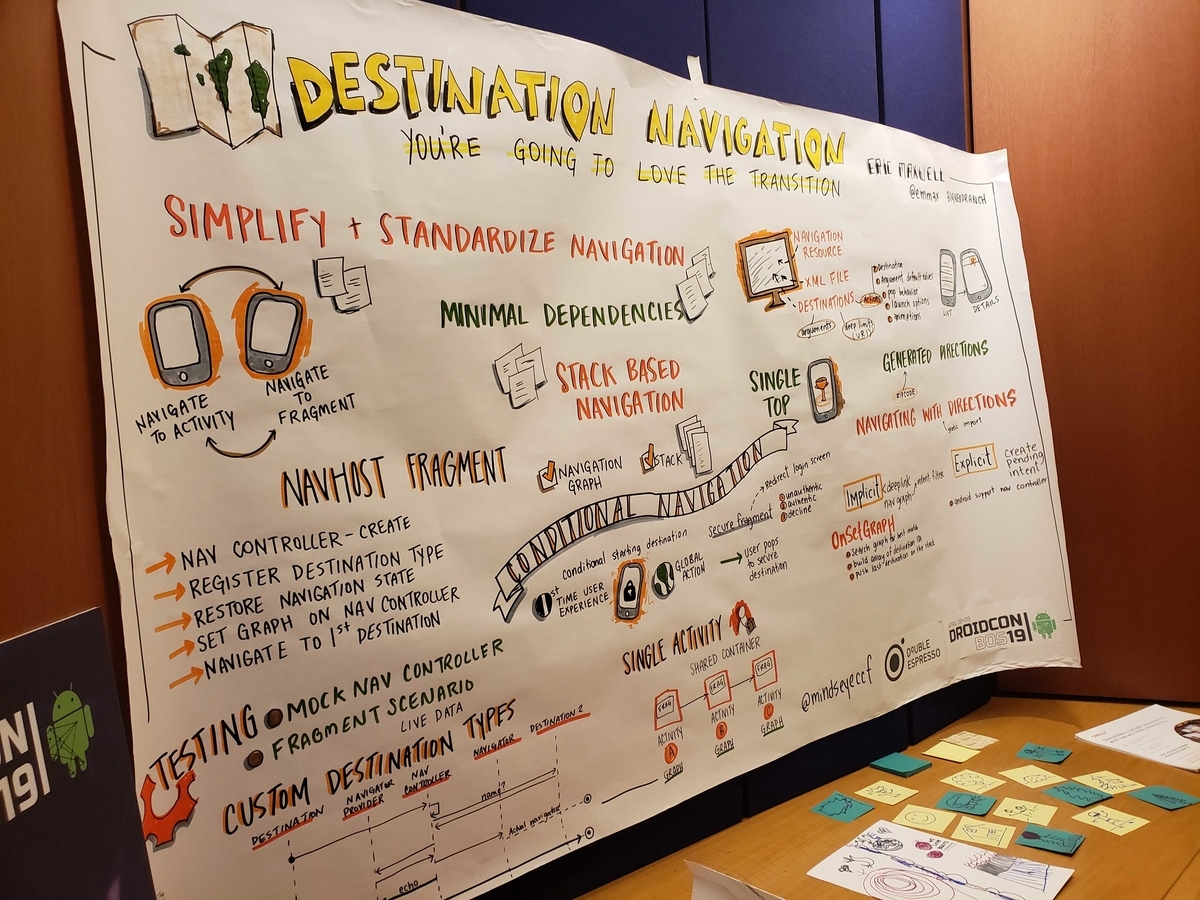 DESTINATION NAVIGATION
YOU'RE GOING TO LOVE THE TRANSITION
ERIC MAXWELL
@emmax BIGNERDRANCH
SIMPLIFY + STANDARDIZE NAVIGATION
NAVIGATE
TO ACTIVITY
NAVIGATE
TO
FRAGMENT
MINIMAL DEPENDENCIES
STACK BASED
NAVIGATION
NAVIGATION
RESOURCE
XML FILE
DESTINATIONS
arguments
deep links
(URI)
actions
Destination
Argument, default values
pop behavior
launch options
animations
LIST
DETAILS
SINGLE
TOP
GENERATED DIRECTIONS
NAVIGATING WITH DIRECTIONS
import
NAVHOST FRAGMENT
NAVIGATION
GRAPH
STACK
NAV CONTROLLER-CREATE
REGISTER DESTINATION TYPE
RESTORE NAVIGATION STATE
SET GRAPH ON NAV CONTROLLER
NAVIGATE TO 1st DESTINATION
CONDITIONAL NAVIGATION
conditional starting destination
1st
TIME USER
EXPERIENCE
GLOBAL
ACTION
secure fragment
Redirect login screen
unauthentic
authentic
decline
user pops
to secure
destination
Implicit
deeplink intent filter
nav graph
Explicit
create
pending
intent
android support nav controller
OnSetGRAPH
search graph for best match
build array of destination IDs
push last destination on the stack
TESTING
MOCK NAV CONTROLLER
FRAGMENT SCENARIO
LIVE DATA
SINGLE ACTIVITY
SHARED CONTAINER
FRAG
FRAG
FRAG
ACTIVITY
A
GRAPH
ACTIVITY
B
GRAPH
ACTIVITY
C
GRAPH
CUSTOM DESTINATION TYPES
DESTINATION
NAVIGATOR
PROVIDER
NAV
CONTROLLER
NAVIGATOR
DESTINATION 2
name?
Actual navigated
echo
@mindseyeccf
DOUBLE
ESPRESSO
DROIDCON
BOS19
N
19